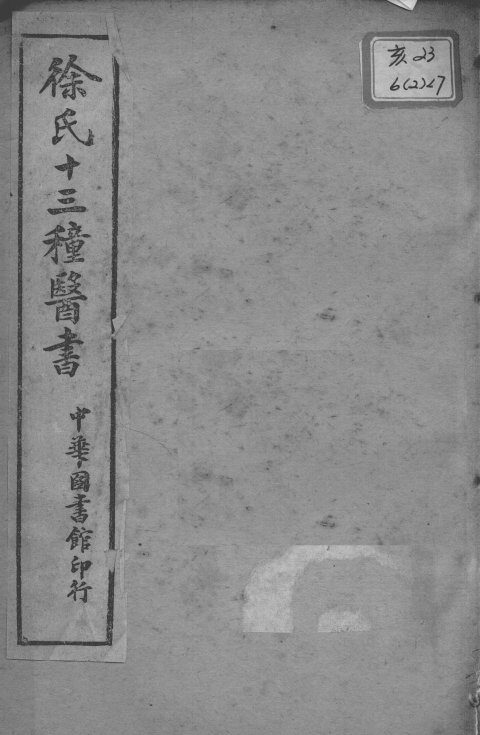 徐氏十三種醫書
中華圖書館印行
亥23
6(2)27